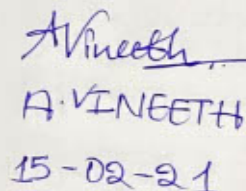 AVineeth
A.VINEETH
15-02-21